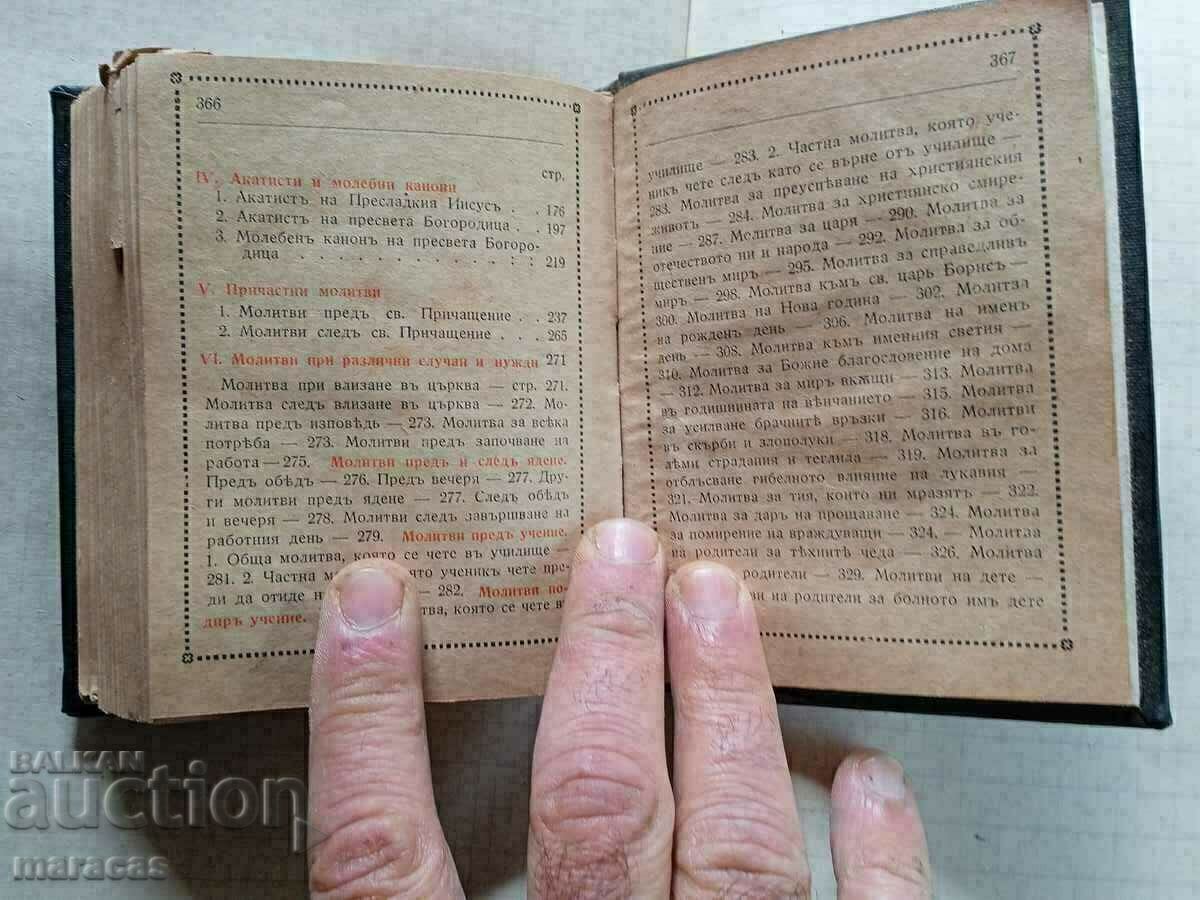 366
стр.
IV. Акатисти и молебни канони
1. Акатистъ на Пресладкия Иисусъ . . 176
2. Акатистъ на пресвета Богородица . . 197
3. Молебенъ канонъ на пресвета Богоро-
дица . . . . . . . . . . . . . 219
V. Причастни молитви
1. Молитви предъ св. Причащение . . 237
2. Молитви следъ св. Причащение . . 265
VI. Молитви при различни случаи и нужди 271
Молитва при влизане въ църква — стр. 271.
Молитва следъ влизане въ църква — 272. Мо-
литва предъ изповѣдь — 273. Молитва за всѣка
потрѣба — 273. Молитви предъ започване на
работа — 275. Молитви предъ и следъ ядене.
Предъ обѣдъ — 276. Предъ вечеря — 277. Дру-
ги молитви предъ ядене — 277. Следъ обѣдъ
и вечеря — 278. Молитви следъ завършване на
работния день — 279. Молитви предъ учение.
1. Обща молитва, която се чете въ училище —
281. 2. Частна която ученикъ чете пре-
ди да отиде — 282. Молитви по-
диръ учение. която се чете въ
367
училище — 283. 2. Частна молитва, която уче-
никъ чете следъ като се върне отъ училище —
283. Молитва за преуспѣване на християнския
животъ — 284. Молитва за християнско смире-
ние — 287. Молитва за царя — 290. Молитва за
отечеството ни и народа — 292. Молитва за об-
щественъ миръ — 295. Молитва за справедливъ
миръ — 298. Молитва къмъ св. царь Борисъ —
300. Молитва на Нова година — 302. Молитва
на рожденъ день — 306. Молитва на именъ
день — 308. Молитва къмъ именния светия —
310. Молитва за Божие благословение на дома
— 312. Молитва за миръ вкѫщи — 313. Молитва
въ годишнината на вѣнчанието — 315. Молитва
за усилване брачнитѣ връзки — 316. Молитви
въ скърби и злополуки — 318. Молитва въ го-
лѣми страдания и теглила — 319. Молитва за
отблъсване гибелното влияние на лукавия —
321. Молитва за тия, които ни мразятъ — 322.
Молитва за даръ на прощаване — 324. Молитва
за помирение на враждуващи — 324. — Молитва
на родители за тѣхнитѣ чеда — 326. Молитва
родители — 329. Молитви на дете —
на родители за болното имъ дете
BALKAN
auction
maracas